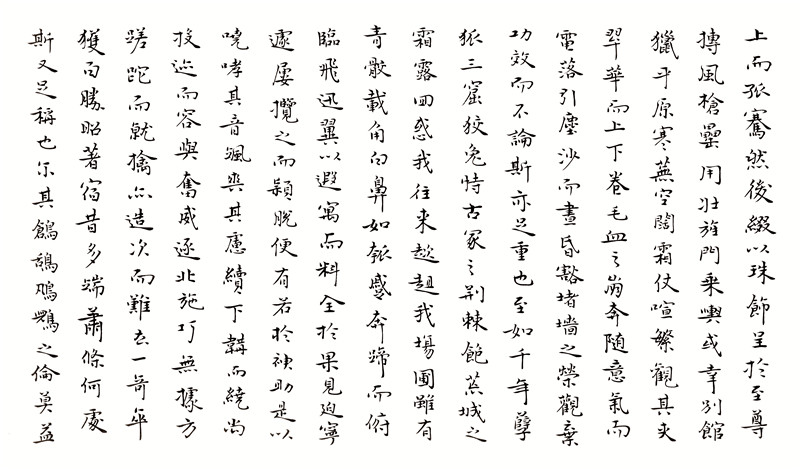 上而孤騫然後綴以珠飾呈於至尊
摶風槍纍用壯旌門乘輿或幸別館
獵平原寒蕪空闊霜仗喧繁觀其夾
翠華而上下卷毛血之崩奔隨意氣而
電落引塵沙而晝昏豁堵墻之榮觀棄
功效而不論斯亦足重也至如千年孽
狐三窟狡兔恃古冢之荊棘飽荒城之
霜露回惑我往來趑趄我場圃雖有
青骹載角白鼻如瓠蹙奔蹄而俯
臨飛迅翼以遐寓而料全於果見迫寧
遽屢攬之而穎脫便有若於神助是以
嘵哮其音颯爽其慮續下韝而繞尚
投迹而容與奮威逐北施巧無據方
蹉跎而就擒亦造次而難去一奇卒
獲百勝昭著宿昔多端蕭條何處
斯又足稱也尔其鶬鴰鴇鶂之倫莫益